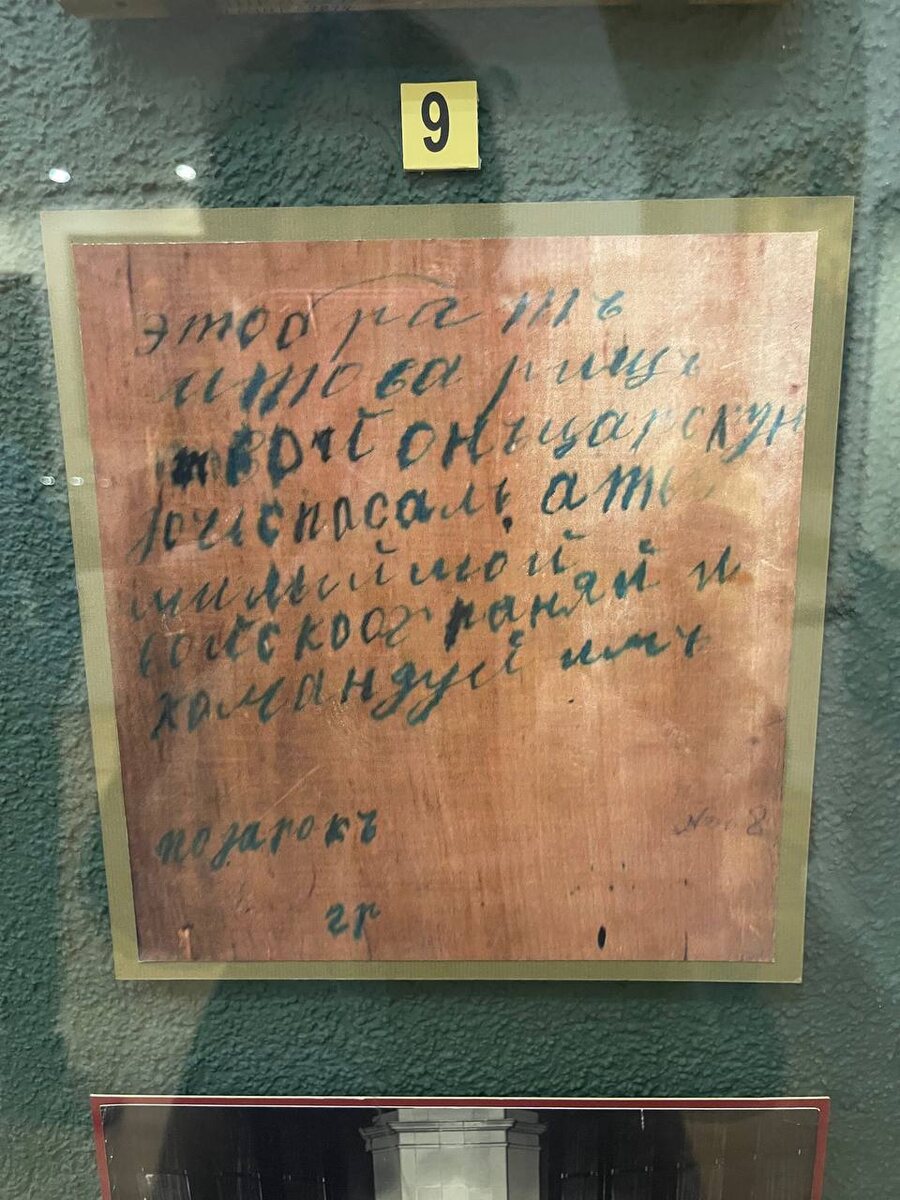 9
этоо ратъ
итова рищъ
твой онъцарскун
юиспосалъ атъ
милыймой
войскоог раняй и
командуй имъ
позарокъ
№ 8
гр